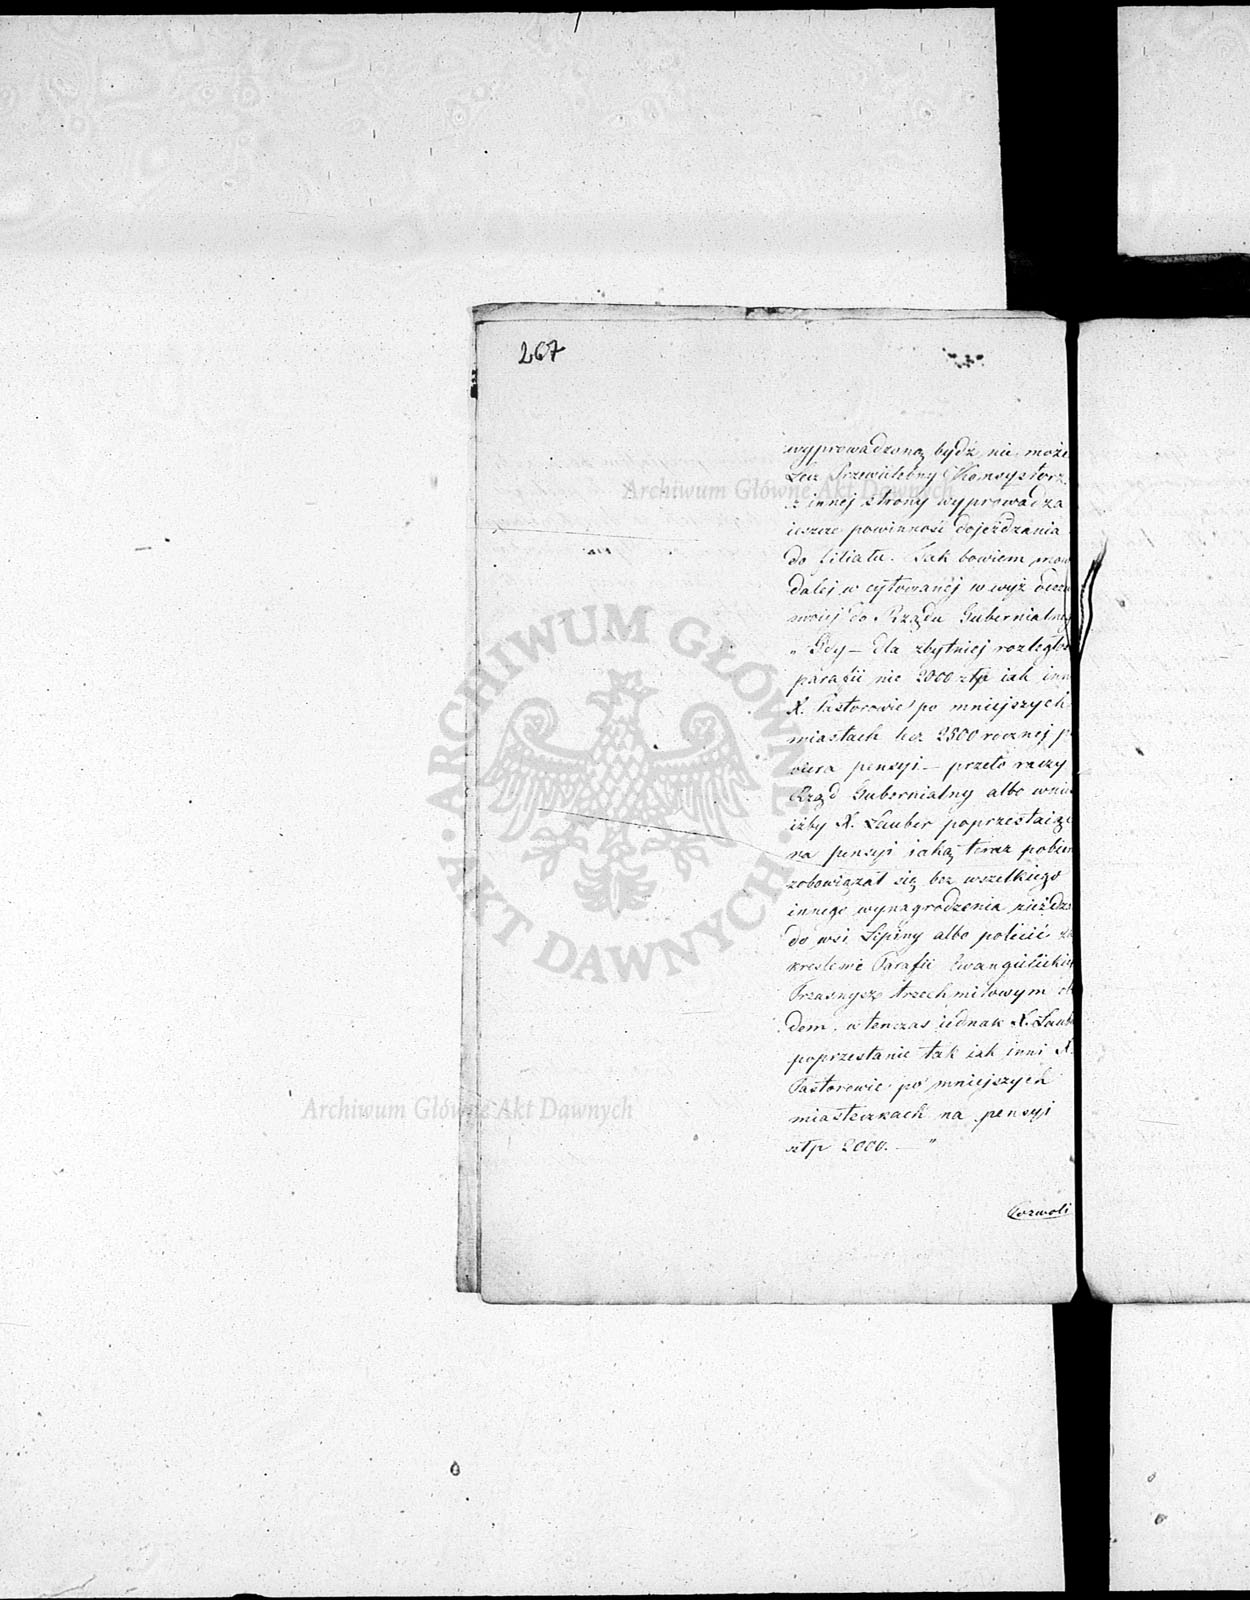 267
wyprowadzoną bydź nie może
Lecz Przewielebny Konsystorz
z innej strony wyprowadza
ieszcze powinność dojeżdzania
do filiału. Tak bowiem mow
dalej w cytowanéj w wyż odezw
mojéj do Rządu Gubernialneg
„Gdy — dla zbytniej rozległoś
parafii nie 2000 złp iak inn
X. Pastorowie po mniejszych
miastach lecz 2500 rocznej po
biera pensyi — przeto raczy
Rząd Gubernialny albo wni
iżby X. Lauber poprzestaiąc
na pensyi iaką teraz pobier
zobowiązał się bez wszelkiego
innego wynagrodzenia zieżdz
do wsi Lipiny albo polecić za
kreslenie Parafii Ewangielickiej
Przasnysz trzech milowym ob
dem, w tenczas iednak X. Laub
poprzestanie tak iak inni X.
Pastorowie po mniejszych
miasteczkach na pensyi
złp 2000. — "
Pozwoli
Archiwum Główne Akt Dawnych
ARCHIWUM GŁÓWNE AKT DAWNYCH
Archiwum Główne Akt Dawnych